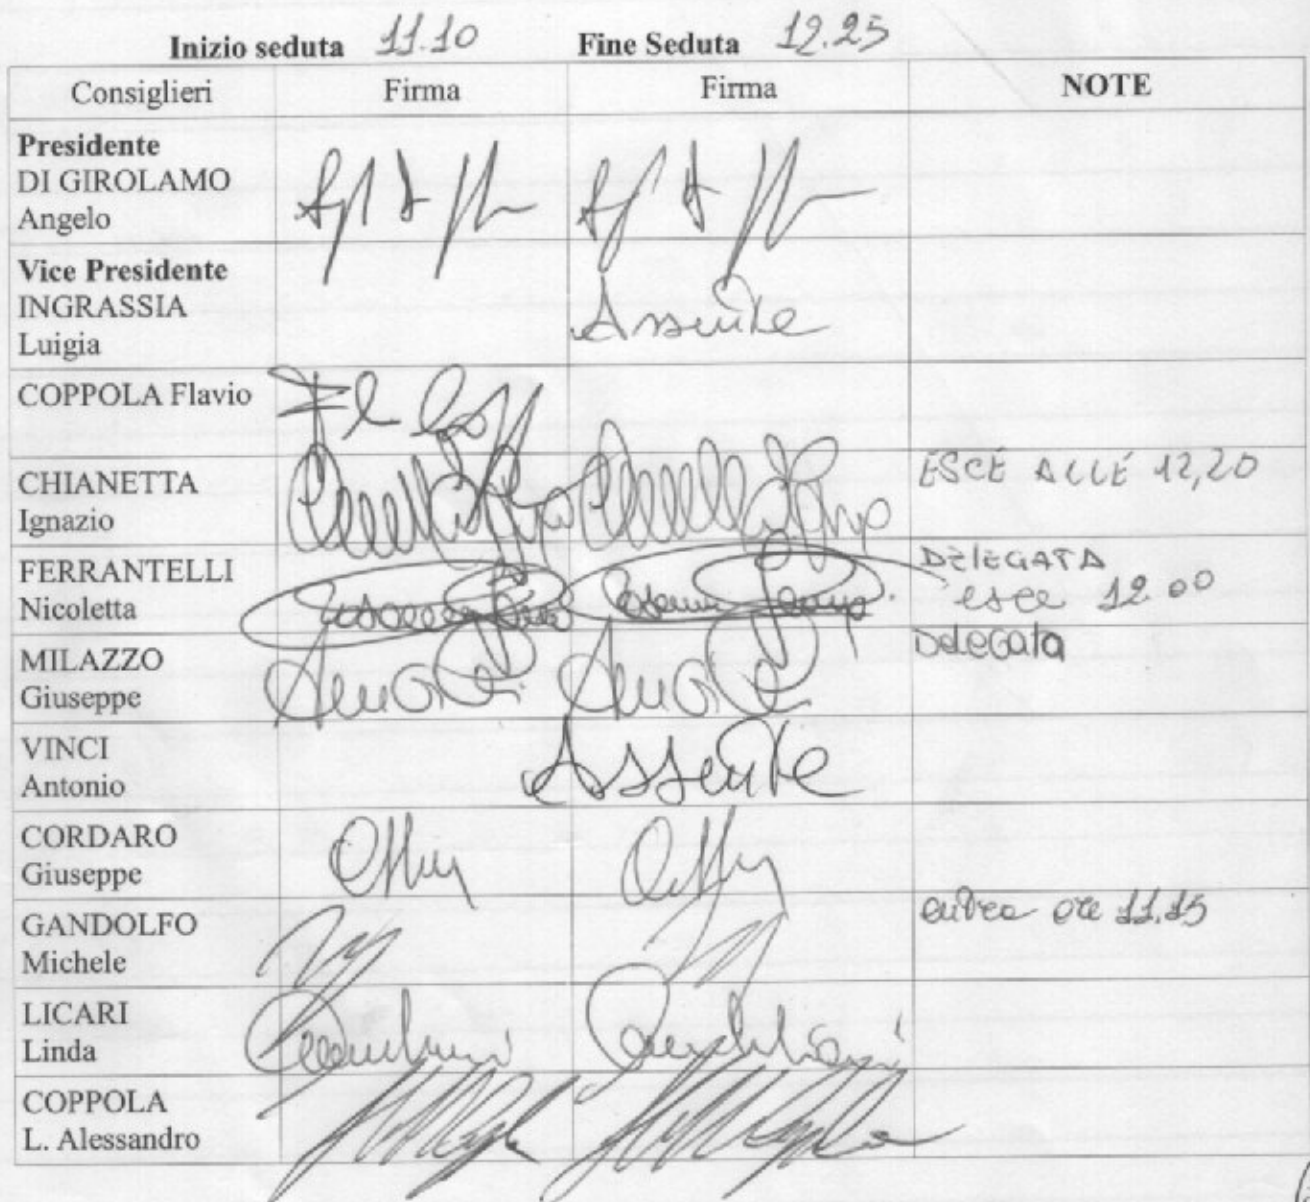 Inizio seduta 11.10 Fine Seduta 12.25
Consiglieri Firma Firma NOTE
Presidente
DI GIROLAMO
Angelo
Vice Presidente
INGRASSIA
Luigia
Assente
COPPOLA Flavio
CHIANETTA
Ignazio
ESCE ALLE 12,20
FERRANTELLI
Nicoletta
DELEGATA
esce 12.00
MILAZZO
Giuseppe
Delegata
VINCI
Antonio
Assente
CORDARO
Giuseppe
GANDOLFO
Michele
entra ore 11.15
LICARI
Linda
COPPOLA
L. Alessandro